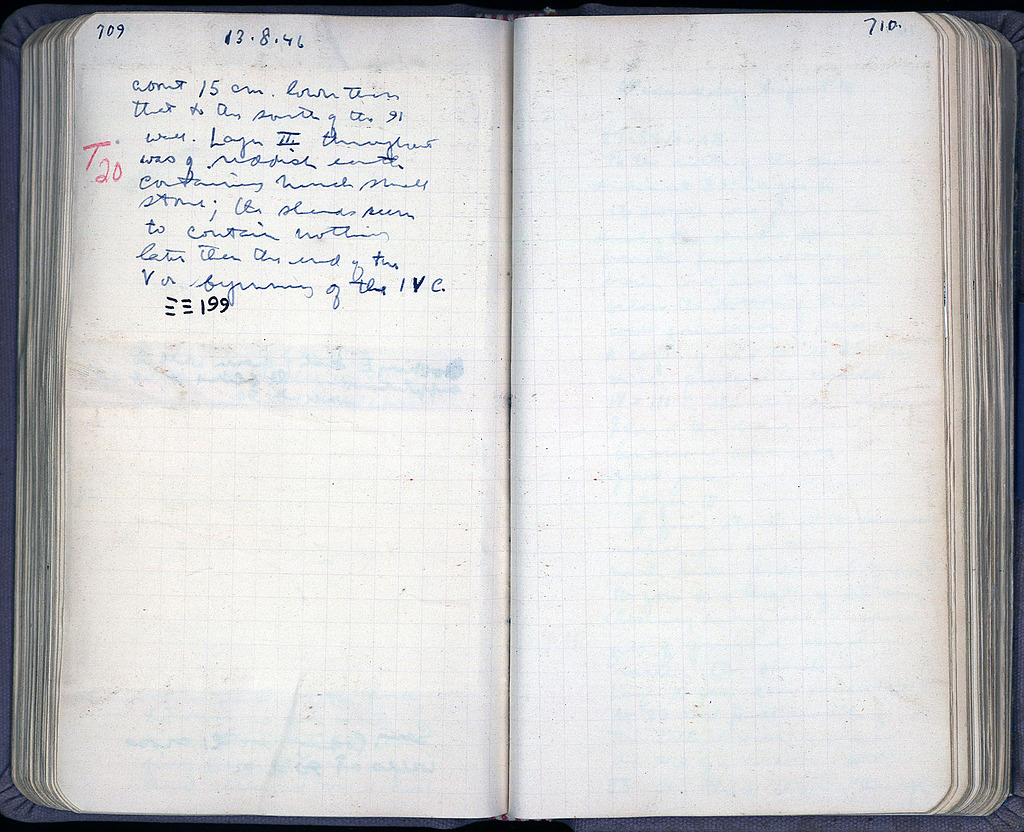 709
13.8.46
about 15 cm. lower than
that to the south of the 91
wall. Layer III throughout
T 20
was of reddish earth
containing much small
stone; the sherds seem
to contain nothing
later than the end of the
V or beginning of the IV C.
ΞΞ 199
710.